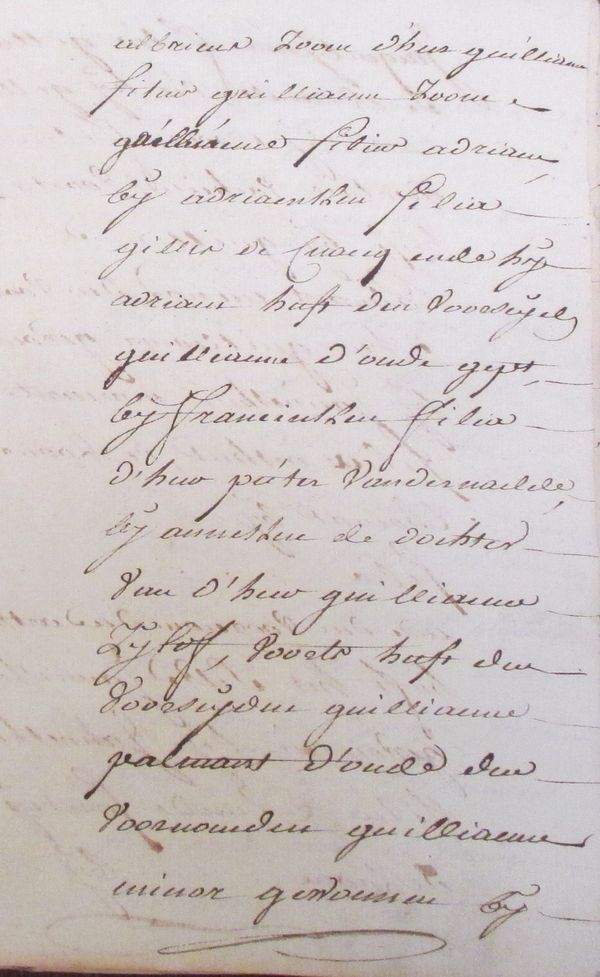 albrieus zoone d'heer guilliame
filius guilliaume zoone
guilliaume filius adriaen,
by adriaentken filia
gillis de Cuacq ende hy
adriaen heeft den voorseyden
guilliaume d'oude gept,
by francintken filia
d'heer pieter vandernaelde,
by anneken de dochter
van d'heer guilliaume
Zylof, voorts heeft den
voorseyden guilliaume
palmart d'oude den
voornoemden guilliaume
minor gewonnen by